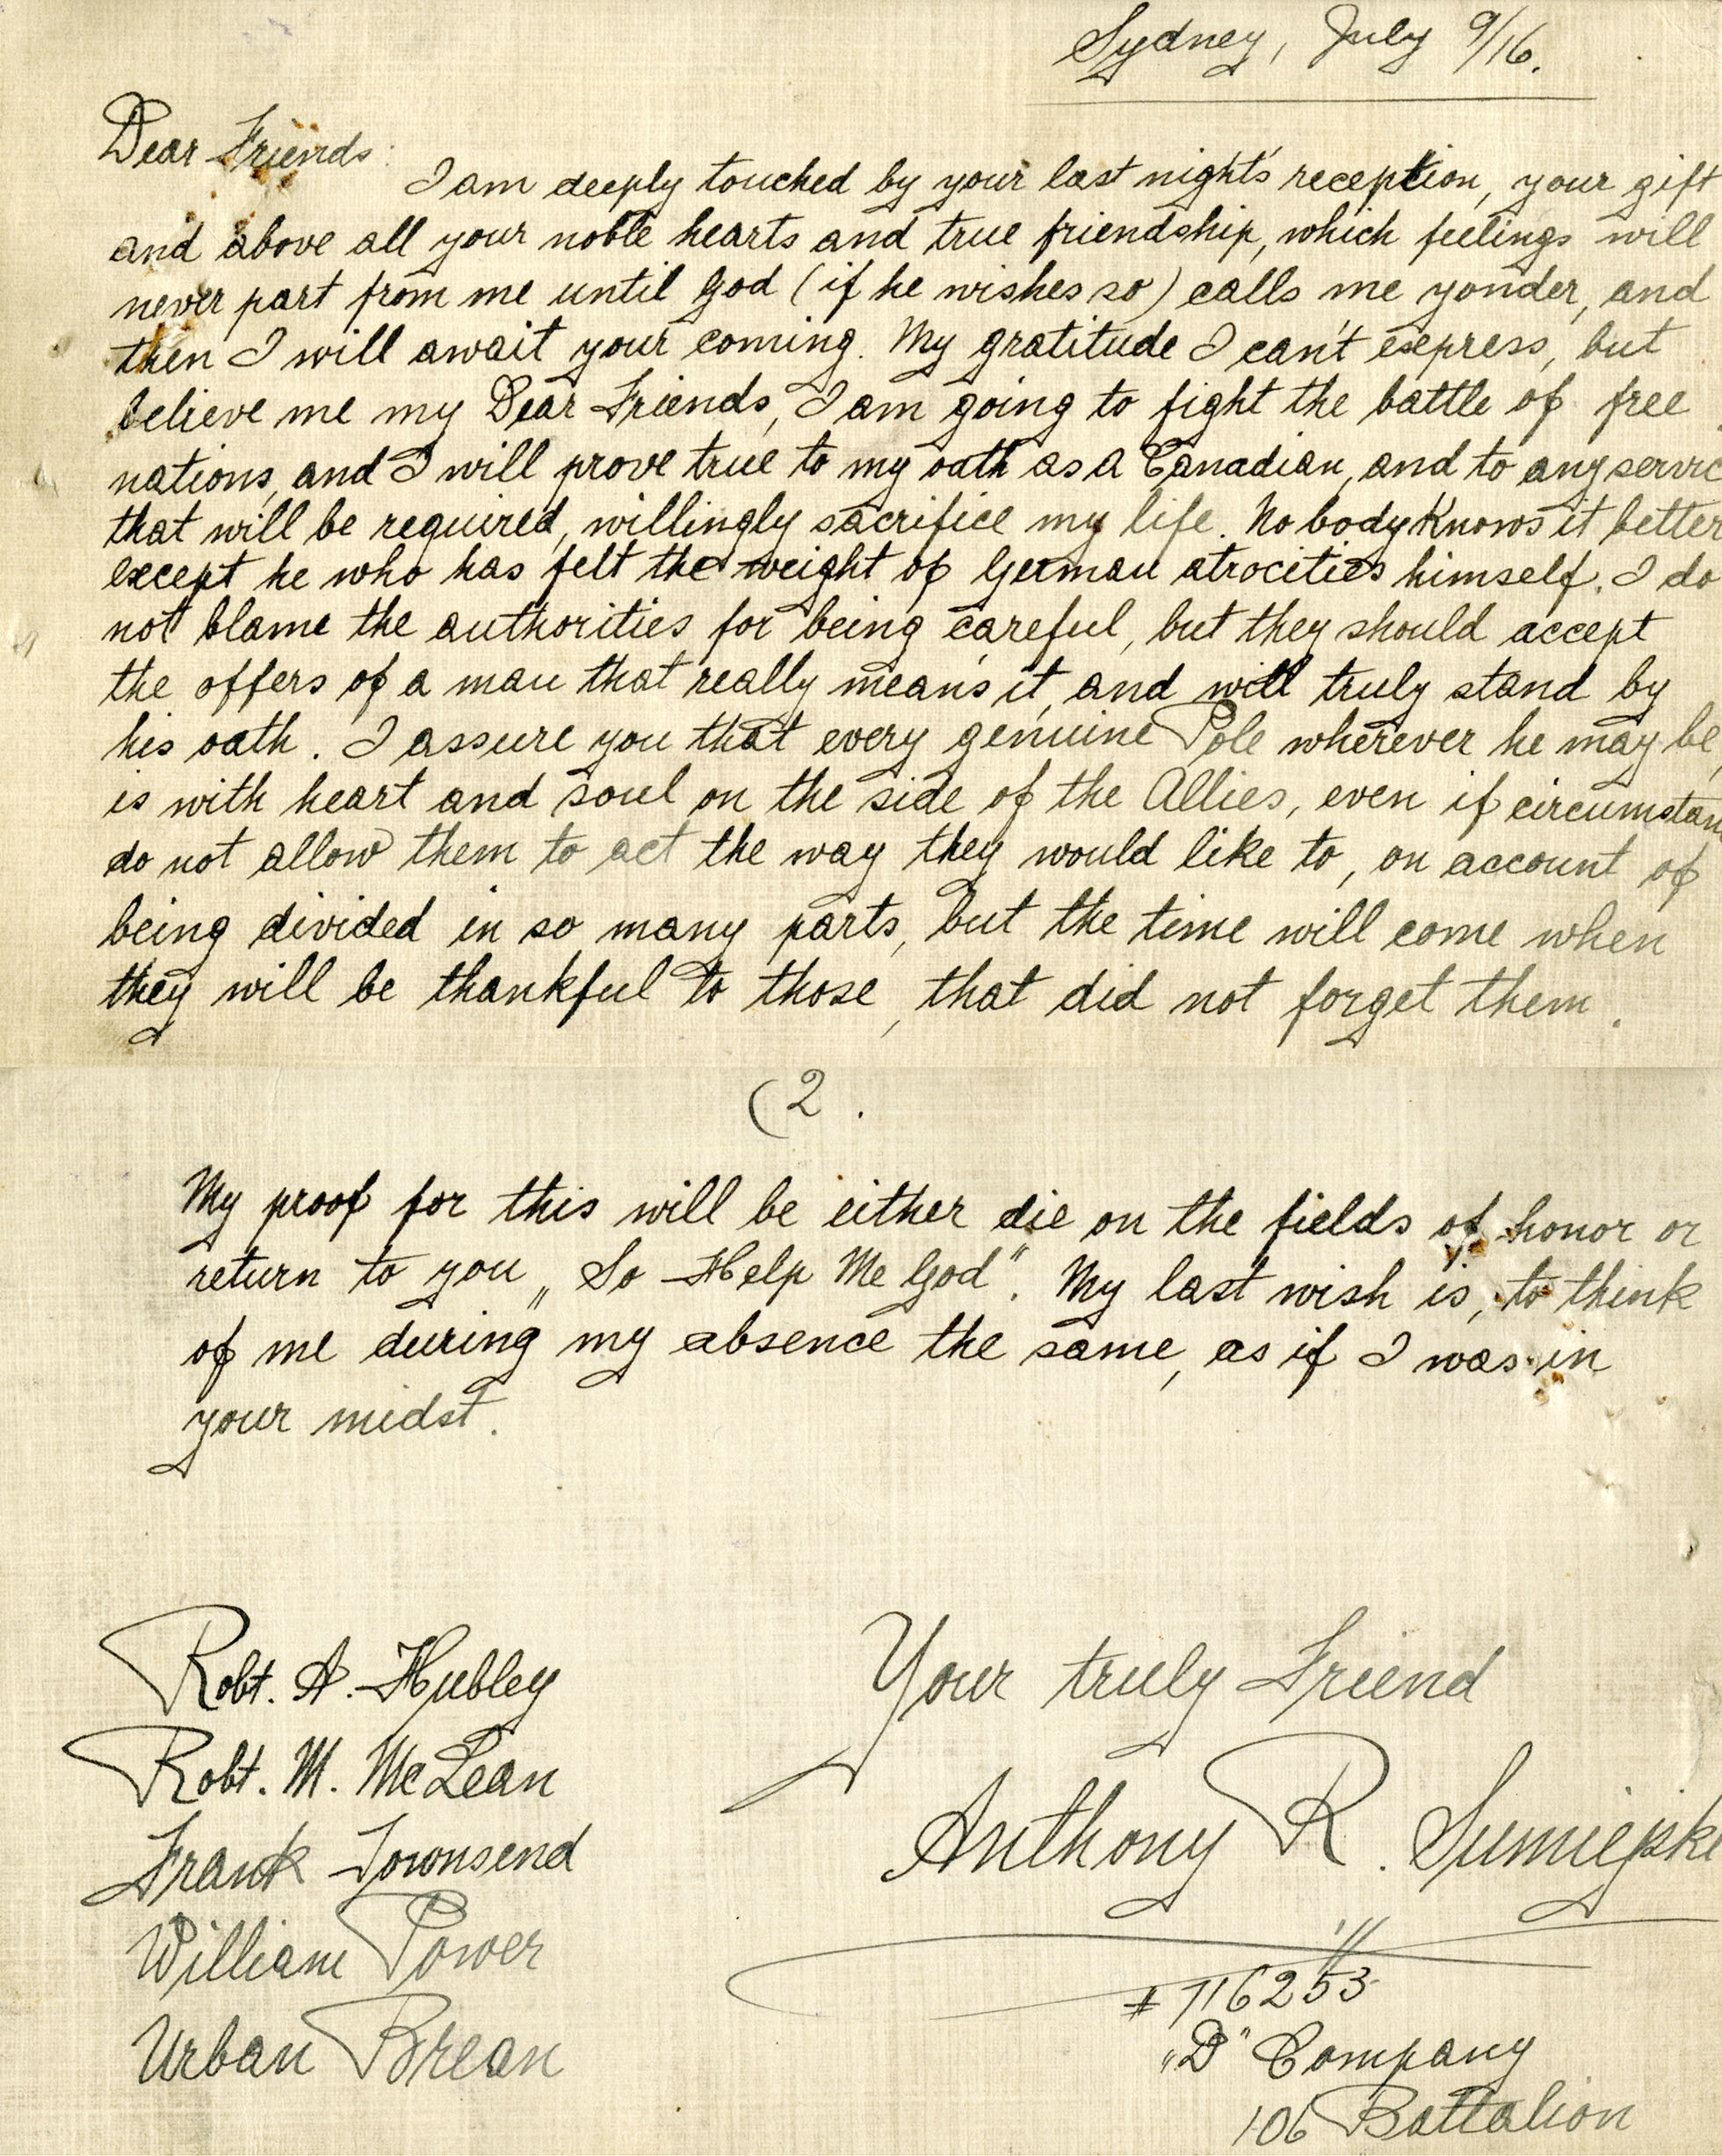 Sydney, July 9/16.
Dear Friends:
I am deeply touched by your last night's reception, your gift
and above all your noble hearts and true friendship, which feelings will
never part from me until God (if he wishes so) calls me yonder, and
then I will await your coming. My gratitude I can't express, but
believe me my Dear Friends, I am going to fight the battle of free
nations, and I will prove true to my oath as a Canadian, and to any servic
that will be required, willingly sacrifice my life. No body knows it better
except he who has felt the weight of German atrocities himself. I do
not blame the authorities for being careful, but they should accept
the offers of a man that really means it, and will truly stand by
his oath. I assure you that every genuine Pole wherever he may be,
is with heart and soul on the side of the Allies, even if circumstan
do not allow them to act the way they would like to, on account of
being divided in so many parts, but the time will come when
they will be thankful to those, that did not forget them.
(2.
My proof for this will be either die on the fields of honor or
return to you „So Help Me God". My last wish is, to think
of me during my absence the same, as if I was in
your midst.
Your truly Friend
Anthony R.
# 716253
„D" Company
106 Battalion
Robt. A. Hubley
Robt. M. McLean
Frank Townsend
William Power
Urban Brean